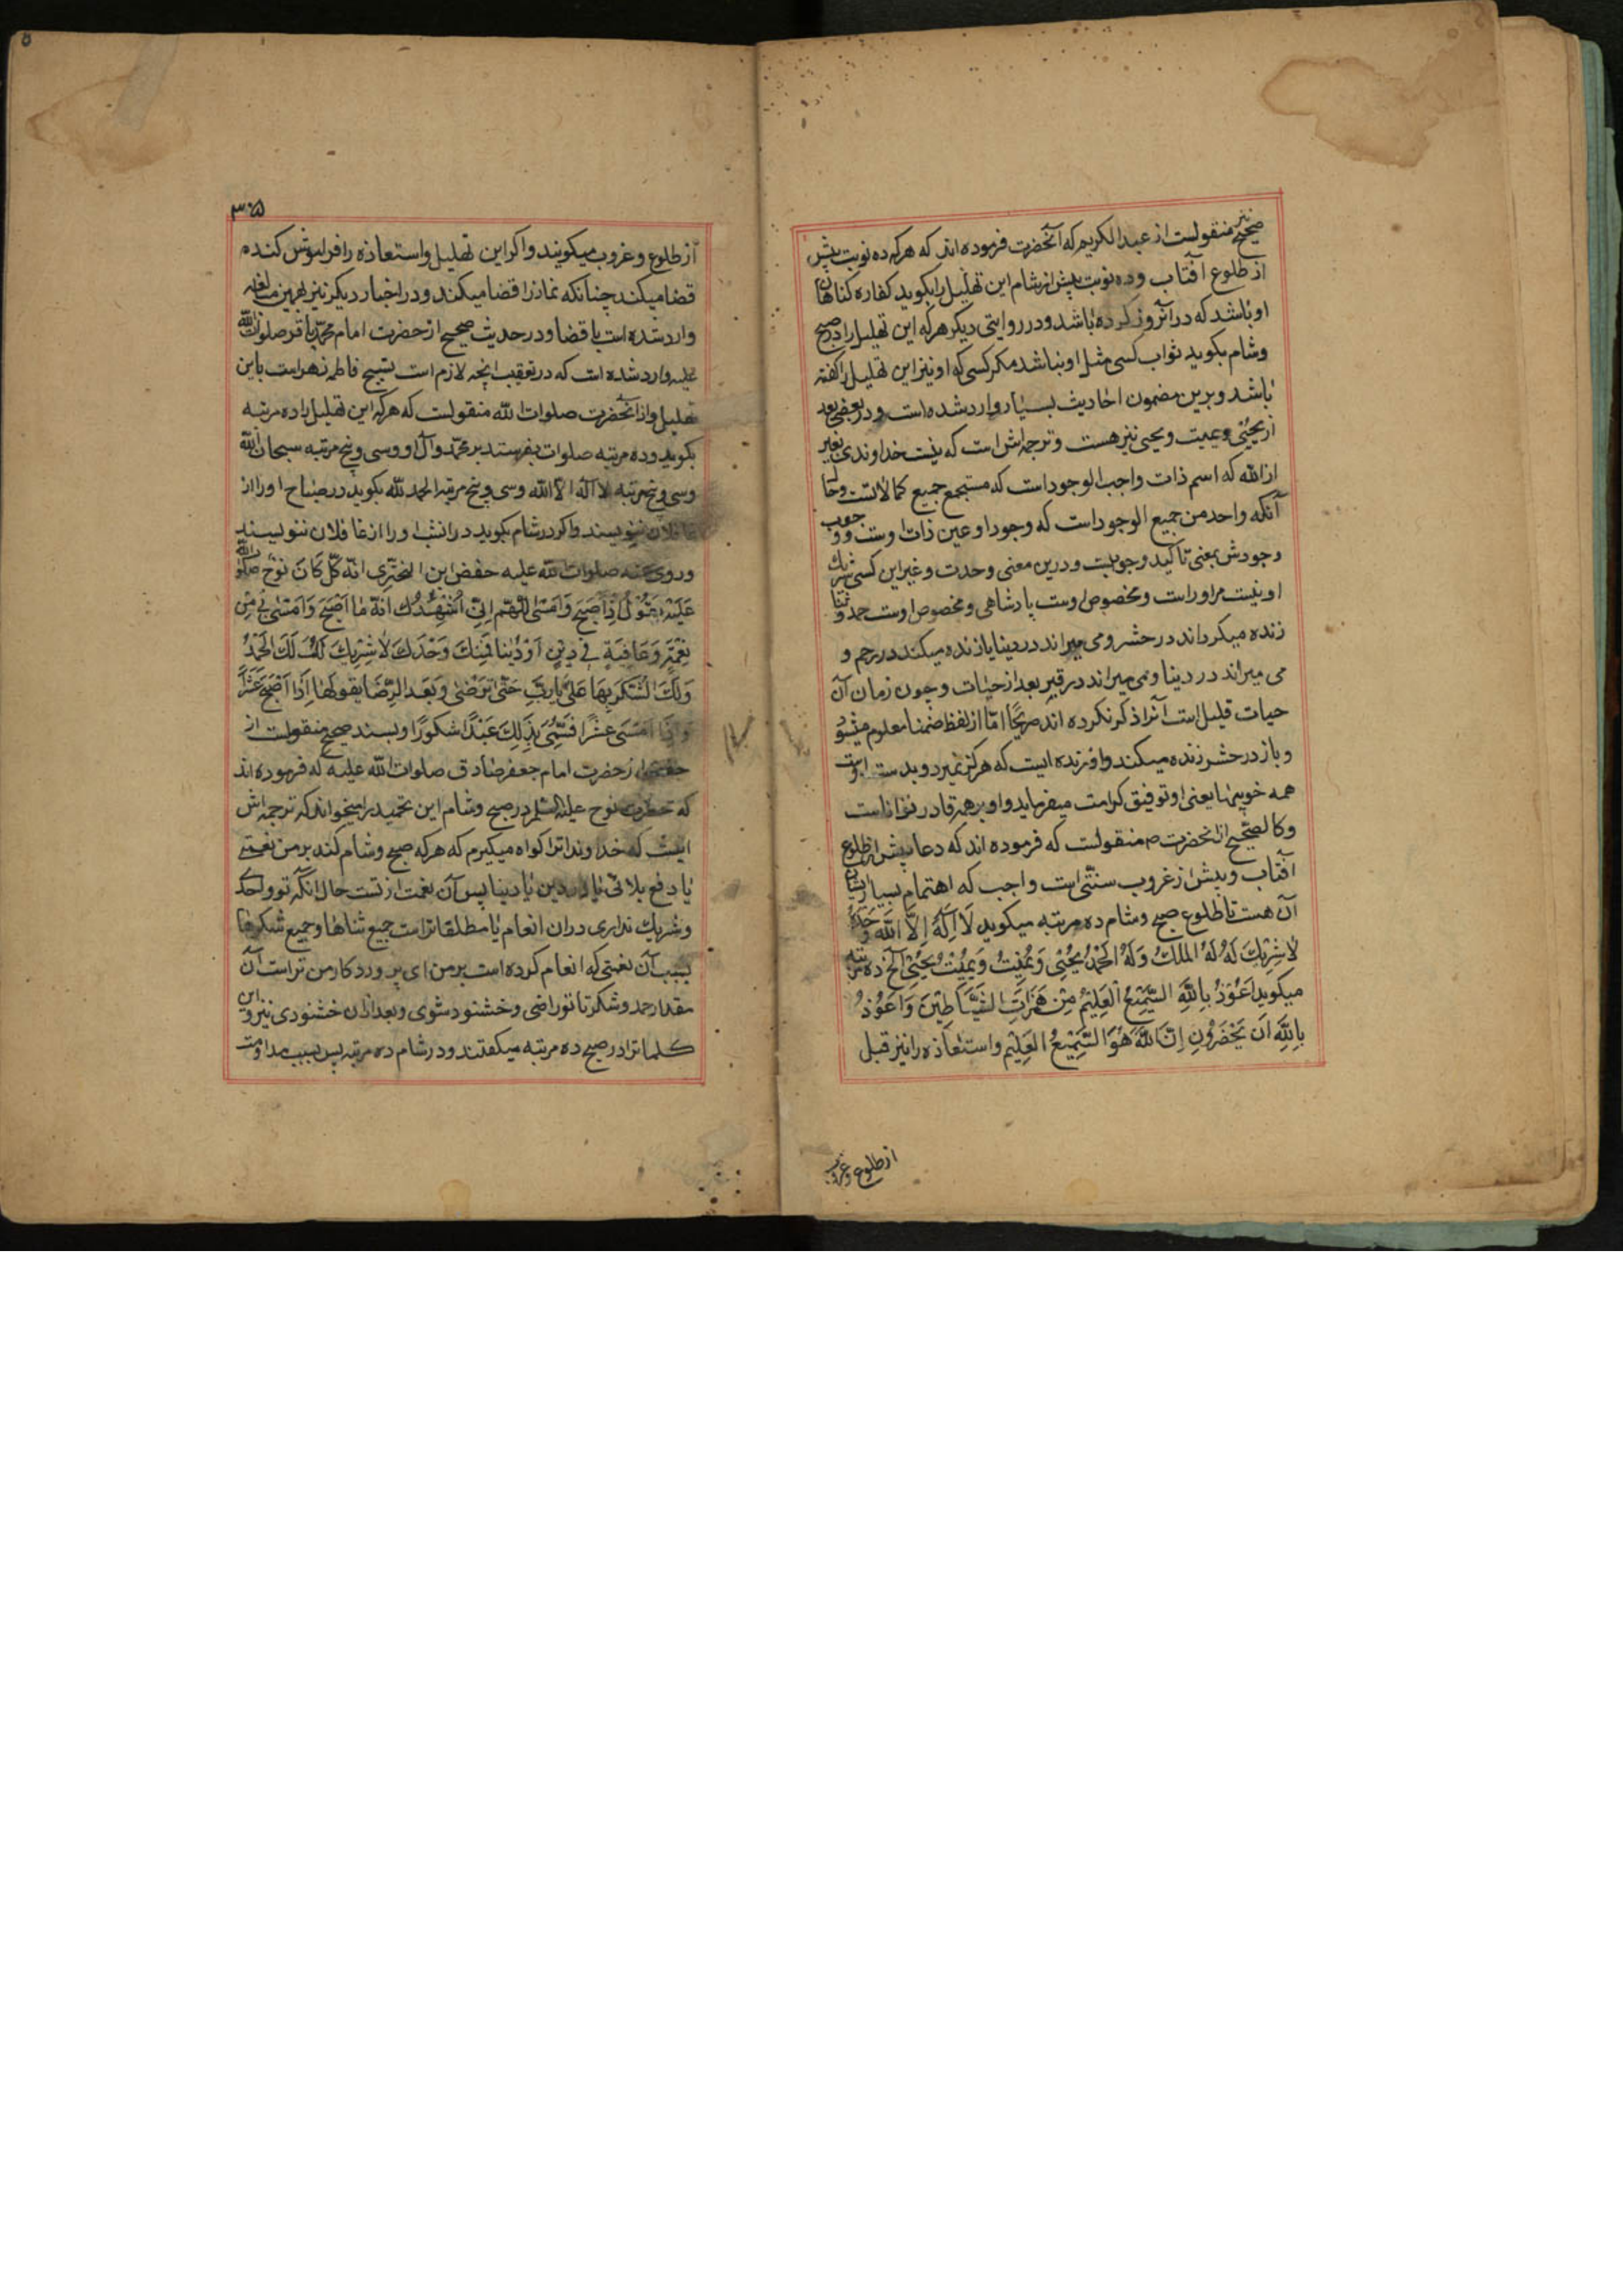 صحیح نیز منقولست از عبدالکریم که آنحضرت فرموده اند که هرکه ده نوبت پیش
از طلوع آفتاب وده نوبت پیش از شام این تهلیل را بکوید کفاره کناهان
او باشد که در آنروز کرده باشد و در روایتی دیکر هرکه این تهلیل را در صبح
وشام بکوید ثواب کسی مثل او نباشد مکر کسی که او نیز این تهلیل را کفته
باشد و برین مضمون احادیث بسیار وارد شده است و در بعضی بعد
از یحیی ویمیت ویمیت ویحیی نیز هست و ترجمه اش است که نیست خداوندی بغیر
از الله که اسم ذات واجب الوجود است که مستجمع جمیع کمالاتست وحا
آنکه واحد من جمیع الوجود است که وجود او عین ذات اوست و وجوب
وجودش بمعنی تاکید وجوبیست و درین معنی وحدت وغیر این کسی شریک
او نیست مر او راست ومخصوص اوست پادشاهی ومخصوص اوست حمد وثنا
زنده میکرداند در حشر ومی میراند در دنیا یا زنده میکند در رحم و
می میراند در دنیا ومی میراند در قبر بعد از حیات وچون زمان آن
حیات قلیل است آنرا ذکر نکرده اند صریحا اما از لفظ ضمنا معلوم میشود
و باز در حشر زنده میکند و او زنده ایست که هرکز نمیرد وبدست اوست
همه خوبیها یعنی او توفیق کرامت میفرماید و او برهمه قادر توانا است
وکالصحیح از آنحضرت ص منقولست که فرموده اند که دعا پیش از طلوع
آفتاب وپیش از غروب سنتی است واجب که اهتمام بسیار بشان
آن هست تا طلوع صبح وشام ده مرتبه میکوید لَا اِلَهَ اِلَّا اللَّهَ وَحْدَهُ
لَاشَرِیكَ لَهُ لَهُ المُلْكُ وَلَهُ الحَمْدُ یُحْیِی وَیُمِیتُ وَیُمِیْتُ یُحْیِی الخ ده مرتبه
میکوید اَعُوْذُ بِاللَّهِ السَّمِیْعُ الْعَلِیْمُ مِنْ هَمَزَاتِ الشَّیَاطِیْنَ وَاَعُوْذُ
بِاللَّهِ اَنْ یَحْضَرُوْنِ اِنَّ اللَّهَ هُوَ السَّمِیْعُ العَلِیْمُ و استعاذه را نیز قبل
از طلوع وغروب
۳۰۵
از طلوع وغروب میکویند واکر این تهلیل و استعاذه را فراموش کنند
قضا میکند چنانکه نماز را قضا میکند و در اخبار دیکر نیز بهمین مبالغه
وارد شده است با قضا و در حدیث صحیح از حضرت امام محمد باقر صلوات الله
علیه وارد شده است که در تعقیب آنچه لازم است تسبیح فاطمه زهراست با این
تهلیل و از آنحضرت صلوات الله منقولست که هرکه این تهلیل را ده مرتبه
بکوید وده مرتبه صلوات بفرستد بر محمد وآل او وسی وپنج مرتبه سبحان الله
وسی وپنج مرتبه لا اله الا الله وسی وپنج مرتبه الحمد لله بکوید در صباح او را از
غافلان ننویسند واکر در شام بکوید در انشب او را از غافلان ننویسند
وروی عنه صلوات الله علیه حفص ابن البختری انه کل کَانَ نوح صلوات الله
عَلَیْهِ یَقُوْلُ اِذَا اَصْبَحَ وَاَمْسَی اَللّهُمَّ اِنّی اُشْهِدُكَ اَنَّهُ مَا اَصْبَحَ وَاَمْسَی بِیْ مِنْ
نِعْمَةٍ وَعَافِیَةٍ فِی دِیْنٍ اَوْ دُنْیَا فَمِنْكَ وَحْدَكَ لَاشَرِیْكَ لَكَ لَكَ الحَمْدُ
وَلَكَ الشُّکْرُ بِهَا عَلَیَّ یَا رَبِّ حَتَّی تَرْضَی وَبَعْدَ الرِّضَا یقولهَا اِذَا اَصْبَحَ عَشْرًا
وَاِذَا اَمْسَی عَشْرًا فَسُمِّیَ بِذَلِكَ عَبْدًا شَکُورًا و بسند صحیح منقولست از
حفص از حضرت امام جعفر صادق صلوات الله علیه که فرموده اند
که حضرت نوح علیه السلم در صبح وشام این تحمید را میخواند که ترجمه اش
اینست که خداوندا ترا کواه میکیرم که هرکه صبح وشام کند بر من نعمتی
یا دفع بلائی یا در دین یا دنیا پس آن نعمت از تست حال آنکه تو واحد
وشریك نداری در ان انعام یا مطلقا تراست جمیع ثناها وجمیع شکرها
بسبب آن نعمتی که انعام کرده است بر من ای پروردکار من تراست آن
مقدار حمد وشکر تا تو راضی وخشنود شوی وبعد از ان خشنودی نیز و این
کلماترا در صبح ده مرتبه میکفتند و در شام ده مرتبه پس بسبب مداومت